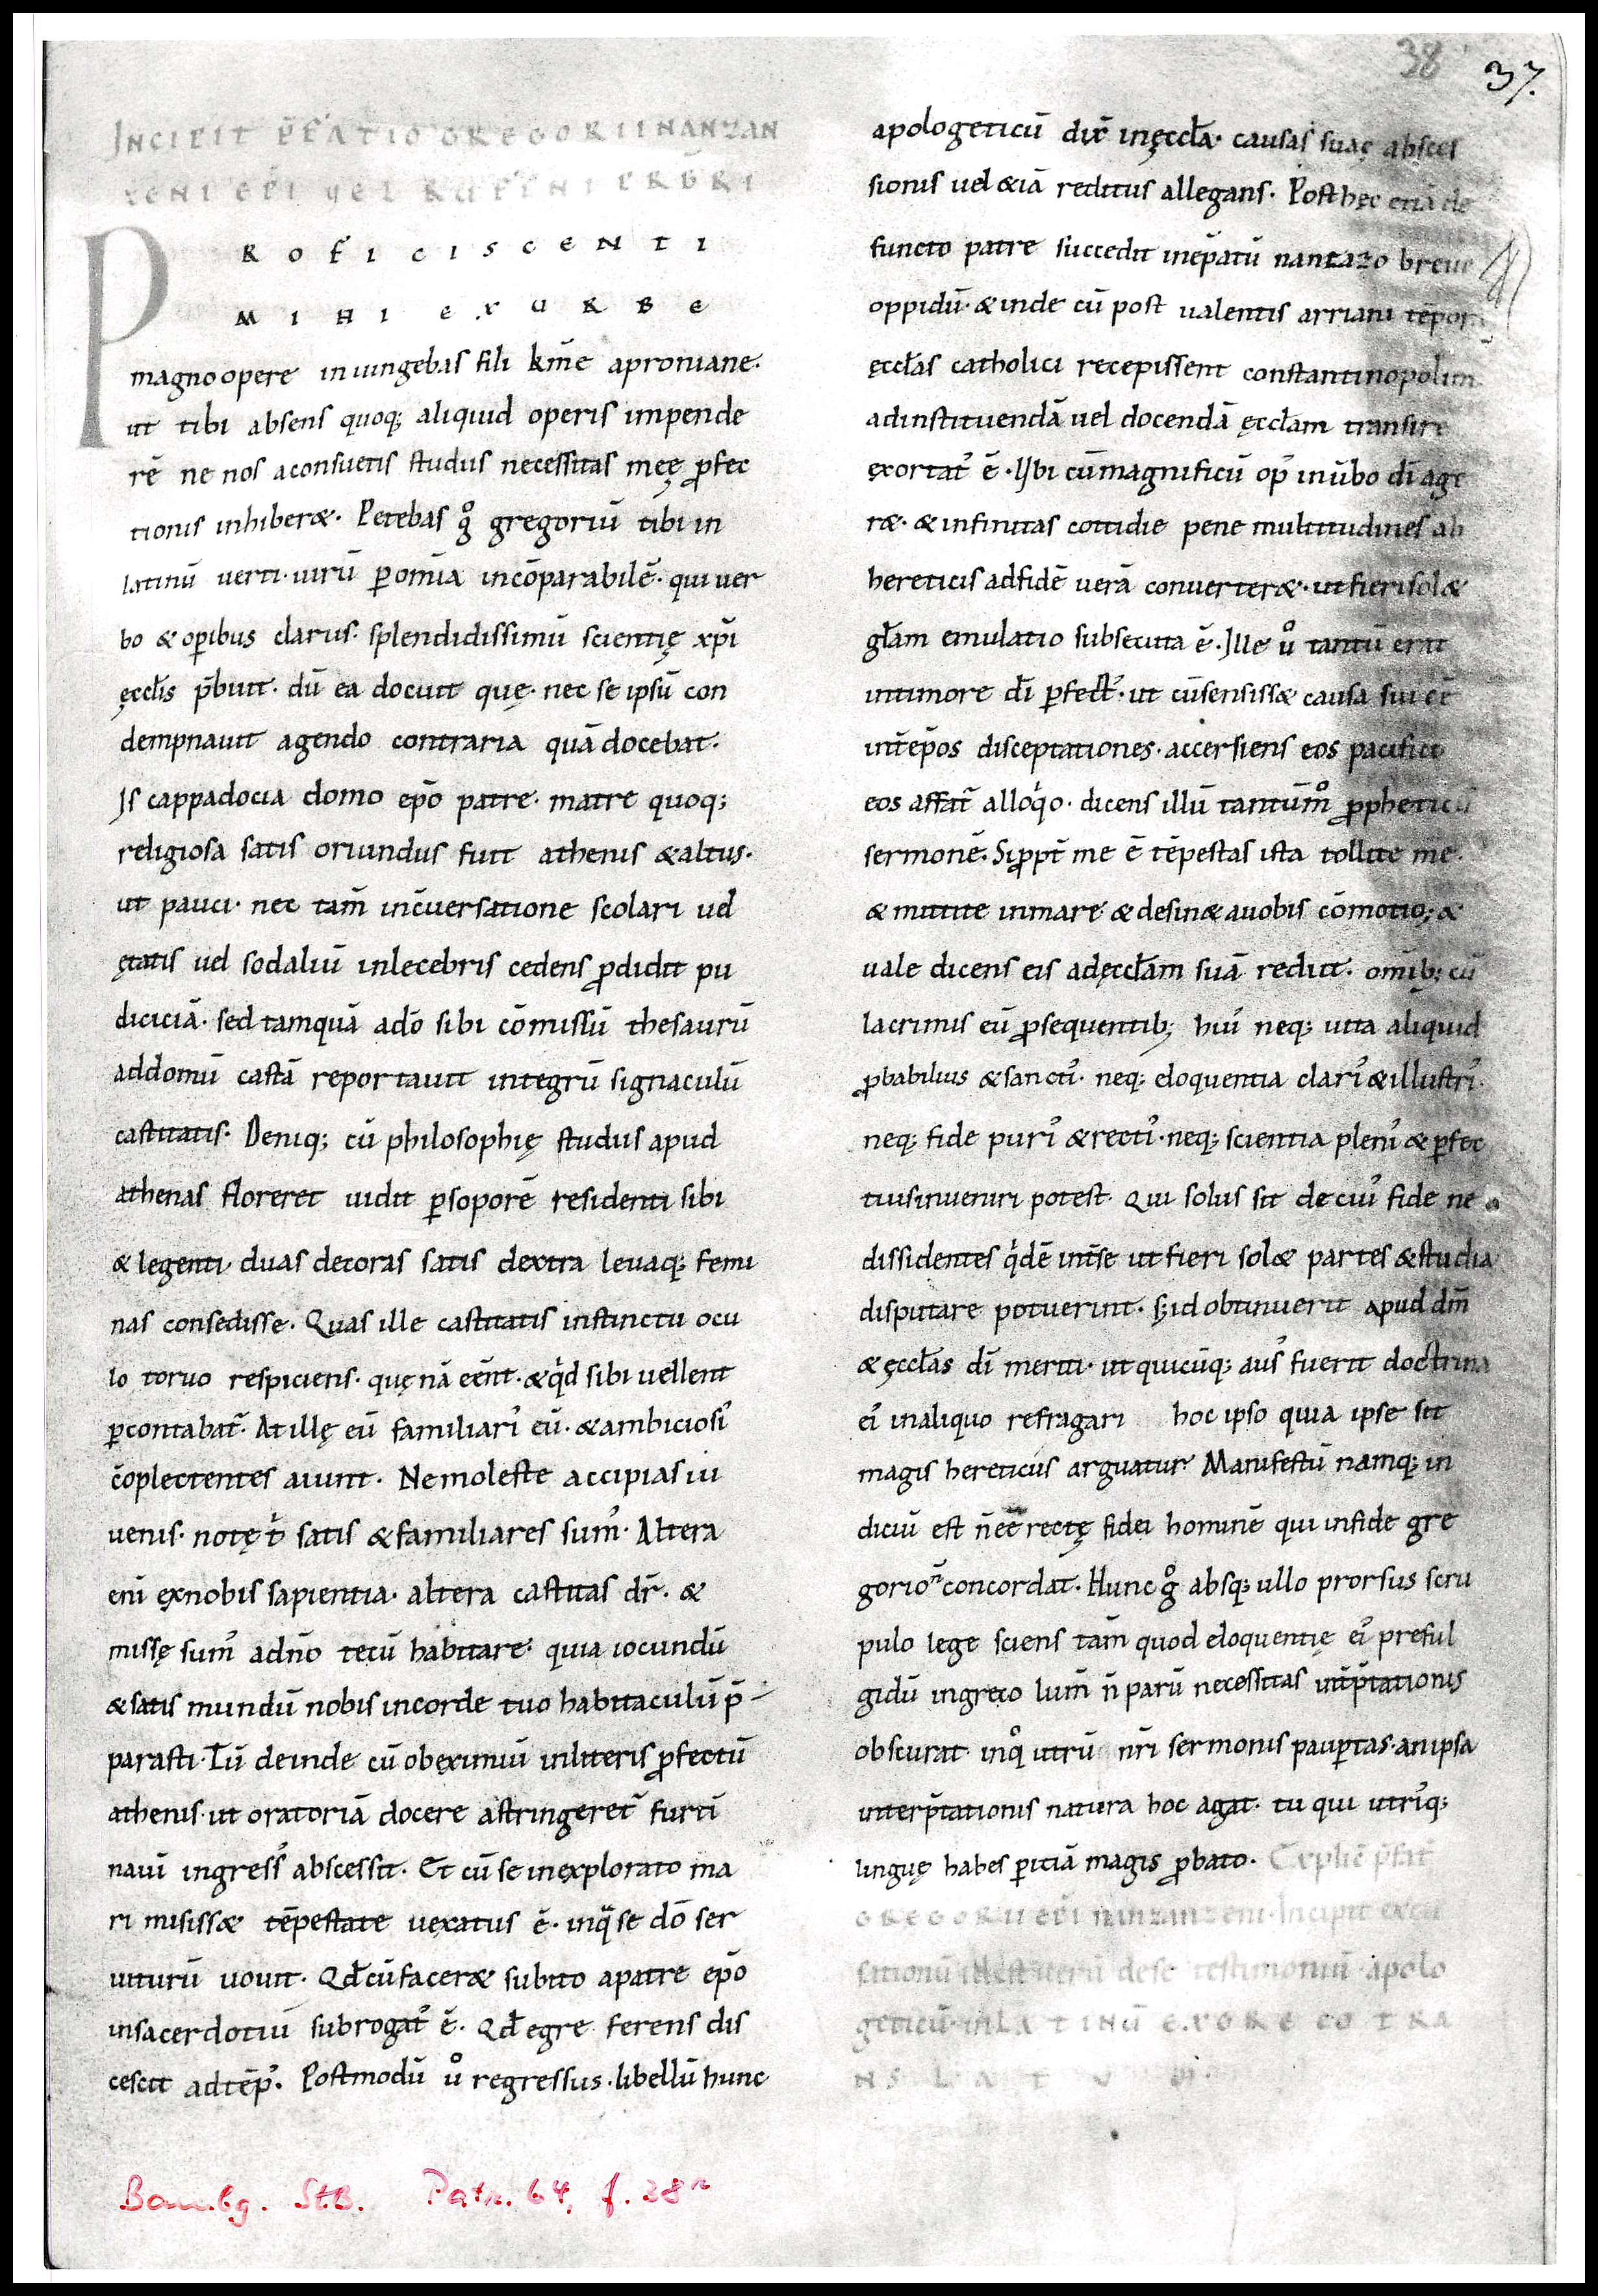 38 37.
INCIPIT P̄FATIO GREGORII NANZAN
ZENI EP̄I VEL RUFINI PRB̄RI
PROFICISCENTI
MIHI EX URBE
magnoopere iniungebas fili km̄e aproniane·
ut tibi absens quoq; aliquid operis impende
rē ne nos aconsuetis studiis necessitas meę ꝓfec
tionis inhiberæ· Petebas g̊ gregoriū tibi in
latinū verti· uirū ꝑ om̄ia incōparabilē· qui uer
bo & oꝑibus clarus· splendidissimū scientię xp̄i
ęccl̄is p̄buit· dū ea docuit quę· nec se ipsū con
dempnauit agendo contraria quā docebat·
Is cappadocia domo ep̄o patre· matre quoq;
religiosa satis oriundus fuit athenis & altus·
ut pauci· nec tam̄ in c̄uersatione scolari uel
ętatis uel sodaliū inlecebris cedens ꝓdidit pu
diciciā· sed tamquā a dō sibi cōmissū thesaurū
ad domū castā reportauit integrū signaculū
castitatis· Deniq; cū philosophię studiis apud
athenas floreret uidit ꝑ soporē residenti sibi
& legenti· duas decoras satis dextra leuaq; femi
nas consedisse· Quas ille castitatis instinctu ocu
lo toruo respiciens· quę nā eēnt· & qͥd sibi uellent
ꝑcontabat᷑· At illę eū familiariꝰ eū· & ambiciosiꝰ
c̄oplectentes aiunt· Ne moleste accipias iu
uenis· notę tͥ satis & familiares sumꝰ· Altera
eni ex nobis sapientia· altera castitas dr̄· &
missę sumꝰ a dn̄o tecū habitare· quia iocundū
& satis mundū nobis in corde tuo habitaculū p̄
parasti· Tū deinde cū ob eximiū in literis ꝓfectū
athenis· ut oratoriā docere astringeret᷑ furti
nauī ingressꝰ abscessit· Et cū se inexplorato ma
ri misissæ tēpestate uexatus ē· in q̄ se dō ser
uiturū uouit· Qd̄ cū faceræ subito a patre ep̄o
in sacerdotiū subrogatꝰ ē· Qd̄ egre ferens dis
cescit ad tēpꝰ· Postmodū ů regressus· libellū hunc
apologeticū dix̄ in ęccl̄a· causas suaę absces
sionis uel &iā reditus allegans· Post hęc etiā de
functo patre succedit in ep̄atū nanzazo breue
oppidū· & inde cū post ualentis arriani tēpora
ęccl̄as catholici recepissent constantinopolim
ad instituendā uel docendā ęccl̄am transire
exortatꝰ ē· Ubi cū magnificū opꝰ in ūbo dī age
ræ· & infinitas cottidie pene multitudines ab
hereticis ad fidē verā converteræ· ut fieri solæ
gl̄am emulatio subsecuta ē· Ille ů tantū erat
in timore dī ꝑfectꝰ· ut cū sensissæ causa sui eē
int̄ ep̄os disceptationes· accersiens eos pacifico
eos affat᷑ alloqͥo· dicens illū tantūm̊ ꝓpheticū
sermonē· Si ꝓpt̄ me ē tēpestas ista tollite me·
& mittite in mare· & desinæ a uobis cōmotio; &
uale dicens eis ad ęccl̄am suā rediit· om̄ib; cū
lacrimis eū ꝓsequentib; huiꝰ neq; uita aliquid
ꝓbabilius & sanctiꝰ· neq; eloquentia clariꝰ & illustriꝰ·
neq; fide puriꝰ & rectiꝰ· neq; scientia pleniꝰ & ꝑfec
tius inueniri potest· Qui solus sit de cuiꝰ fide ne
dissidentes qͥdē int̄ se ut fieri solæ partes & studia
disputare potuerint· Sʒ id obtinuerit apud dm̄
& ęccl̄as dī meriti· ut quicūq; ausꝰ fuerit doctrina
eiꝰ in aliquo refragari hoc ipso quia ipse sit
magis hereticus arguatur· Manifestū namq; in
diciū est n̄ eē rectę fidei hominē qui in fide gre
gorio ⁿ concordat· Hunc g̊ absq; ullo prorsus scru
pulo lege sciens tam̄ quod eloquentię eiꝰ preful
gidū in greco lum̄ n̄ parū necessitas int̄p̄tationis
obscurat in qͦ utrū nr̄i sermonis pauꝑtas· an ipsa
interp̄tationis natura hoc agat· tu qui utriꝰq;
linguę habes ꝑitiā magis ꝓbato· Explic̄ p̄fat᷑
GREGORII EP̄I nanzanzeni· Incipit excu
sationū testimoniū· apolo
geticū· in LATINŪ E GRECO TRA
NSLATUM·
Bambg. StB. Patr. 64, f. 38r